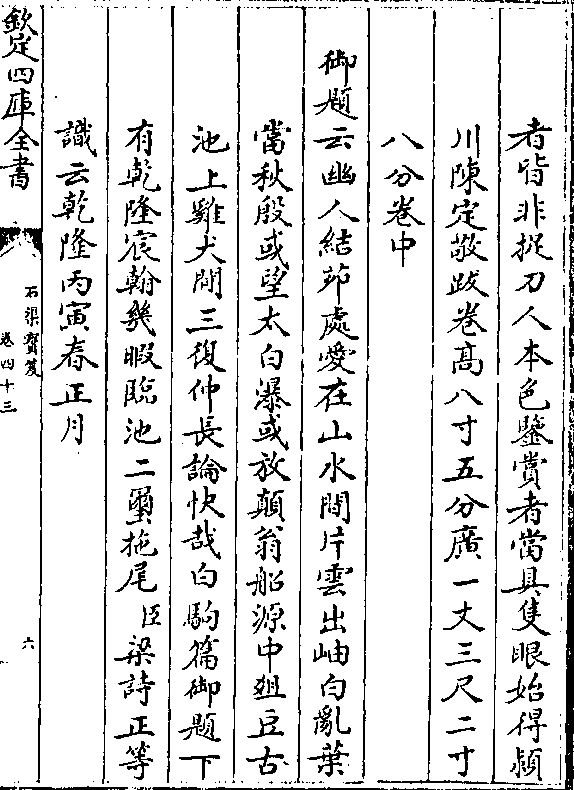 者皆非捉刀人本色鑒賞者當具隻眼始得潁
川陳定敬跋卷髙八寸五分廣一丈三尺二寸
八分卷中
御題云幽人結茆處愛在山水間片雲出岫白亂葉
當秋殷或望太白瀑或放顛翁船源中爼豆古
池上雞犬閒三復仲長論快哉白駒篇御題下
有乾隆宸翰幾暇臨池二璽拖尾臣梁詩正等
識云乾隆丙寅春正月
欽定四庫全書
石渠寳笈
卷四十三
六